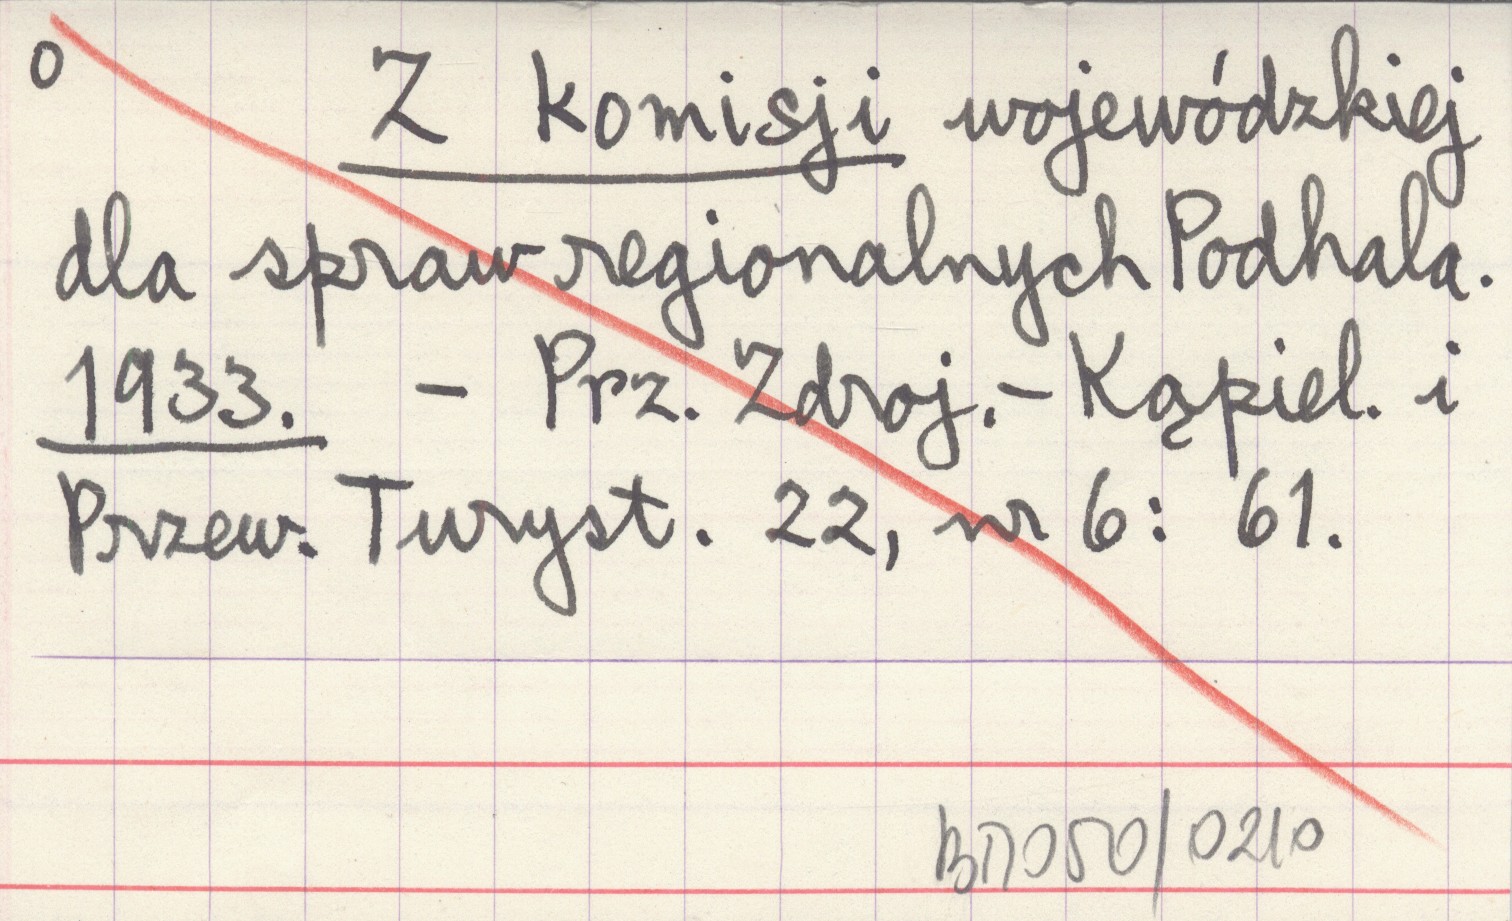 0 Z komisji wojewódzkiej
dla spraw regionalnych Podhala.
1933. - Prz. Zdroj.-Kąpiel. i
Przew. Turyst. 22, nr 6: 61.